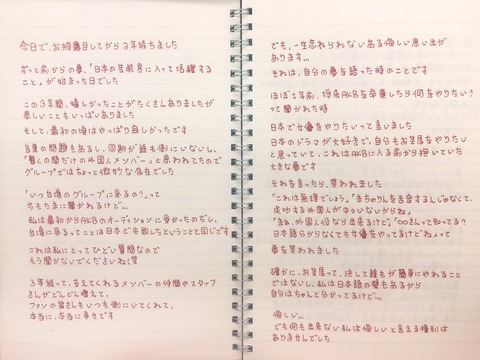 今日で、お披露目してから3年経ちました
ずっと前からの夢、「日本の芸能界に入って活躍する
こと」が始まった日でした
この3年間、嬉しかったことがたくさんありましたが
悲しいこともいっぱいありました
そして、最初の頃はやっぱり寂しかったです
言葉の問題もあるし、同期が誰も側にいないし、
「賢くの間だけの外国人メンバー」と思われてたので
グループではちょっと微妙な存在でした
「いつ台湾のグループに戻るの?」って
今もたまに聞かれるけど...
私は最初からAKBのオーディションに受かったのだし、
台湾に戻るってことは日本で失敗したということと同じです
これは私にとってひどい質問なので
もう聞かないでくださいね(笑
3年経って、支えてくれるメンバーの仲間やスタッフ
さんがどんどん増えて、
ファンの皆さんもいつも側にいてくれて、
本当に、本当に幸せです
でも、一生忘れられないある悔しい思い出が
あります...
それは、自分の夢を語った時のことです
ほぼ1年前、将来AKBを卒業したら何をやりたい?
って聞かれた時
日本で女優をやりたいって言いました
日本のドラマが大好きで、自分もお芝居をやりたい
と思っていて、これはAKBに入る前から抱いていた
大きな夢です
それを言ったら、笑われました
「これは無理でしょう」「まちゃりんを否定するんじゃなくて、
成功する外国人が少ないないからね」
「まぁ、外国人役なら出来るけど」「〇〇さんって知ってる?
日本語うからなくても女優をやってるけどね」って
夢を笑われました
確かに、お芝居って、決して誰もが簡単にやれること
ではないし、私は日本語の壁もあるから
自分はちゃんと分かってるけど...
悔しい...
でも何も出来ない私は悔しいと言える権利は
ありませんでした